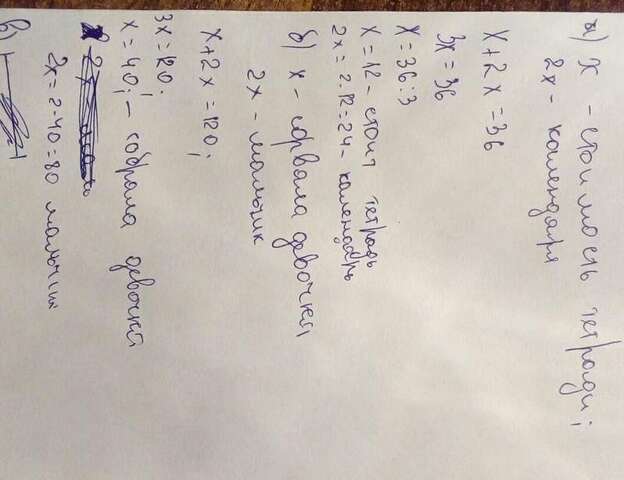 а) x - стоимость тетради;
2x - календаря
x+2x=36
3x=36
x=36:3
x=12 - стоит тетрадь
2x=2·12=24 - календарь
б) x - сорвала девочка
2x - мальчик
x+2x=120;
3x=120;
x=40; - собрала девочка
2x=2·40=80 мальчик
в)